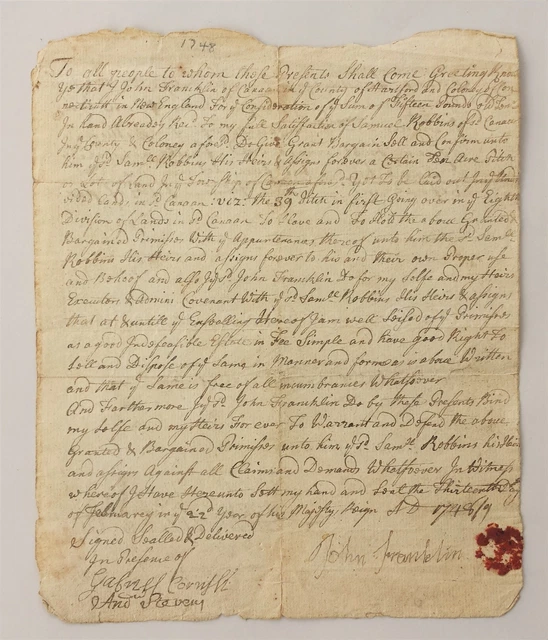 1748
To all people to whom these Presents Shall Come Greeting Know
Ye that I John Franklin of Canaan in ye County of Hartford and Colony of Con
necticutt in New England For ye Consideration of ye Sum of Fifteen Pounds old Ten
In hand Already Recd. To my full Satisfaction of Samuel Robbins of sd Canaan
In ye County & Coloney afore sd. Do Give Grant Bargain Sell and Confirm unto
him ye sd. Samll Robbins His Heirs & assigns forever a Certain Ten Acre Pitch
or of land in ye Township of Yet To be laid out
Land in sd Canaan viz: the 39th Pitch in first Quay over in ye Eighth
Division of Lands in sd Canaan To Have and To Hold the above Granted
Bargained Premisses With ye Appurtenances thereof unto him the sd. Samll.
Robbins His Heirs and assigns forever to his and their own Proper use
and Behoof and allso I ye sd John Franklin Do for my Selfe and my Heirs
Executors & admins Covenant With ye sd Samll Robbins His Heirs & assigns
that at & untill ye Ensealling Hereof I am well Seised of ye Premisses
as a good Indefeasible Estate in Fee Simple and have good Right To
Sell and Dispose of ye Same in Manner and form as is above Written
and that ye Same is free of all incumbrances Whatsoever
And Farthermore I ye sd John Franklin Do by these Presents Bind
my Selfe and my Heirs For ever To Warrant and Defend the above
Granted & Bargained Premisses unto him ye sd. Samll. Robbins his Heirs
and assigns Against all Claims and Demands Whatsoever In Witness
whereof I Have Hereunto Sett my hand and Seal the Thirteenth Day
of February in ye 22d Year of his Majestys Reign A D 1748/9
Signed Sealled & Delivered
In Presence of
John Franklin
Gabriell Cornish
And Stevens